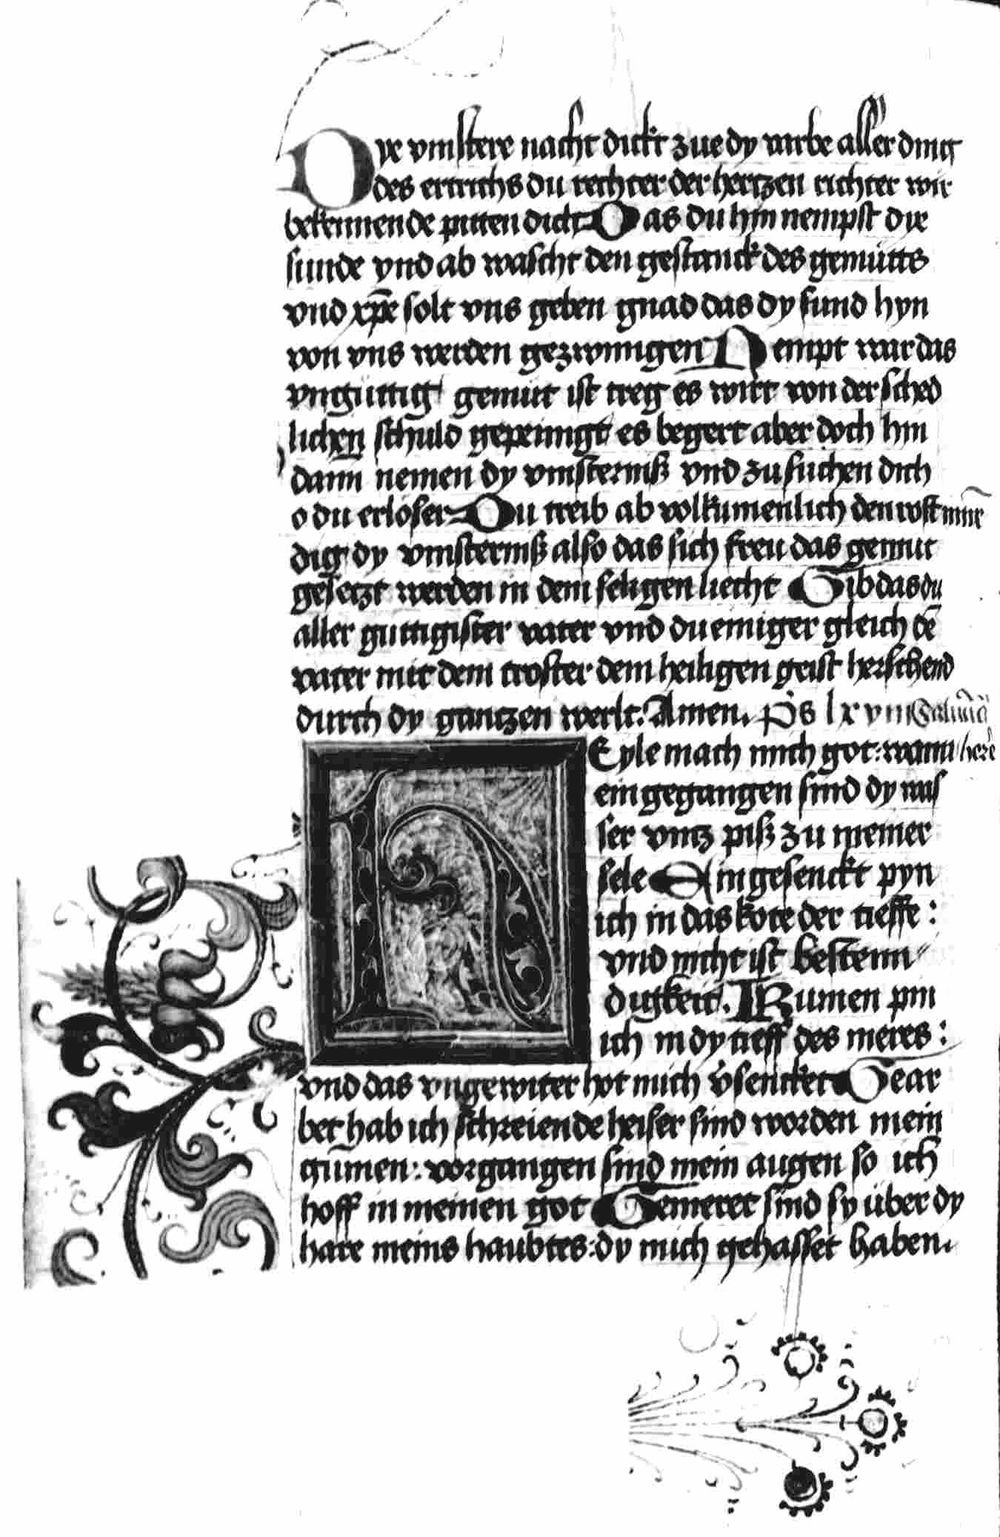 Dye vinstere nacht dickt zue dy varbe aller ding
des ertrichs du rechter der hertzen richter wir
bekennende pitten dich Das du hin nempst dye
sunde vnd ab wascht den gestanck des gemütts
vnd xp̄e solt vns geben gnad das dy sund hyn
von vns werden gezwungen Nempt war das
vngüttig gemüt ist treg es wirt von der sched
lichen schuld gepeinigt es begert aber doch hin
dann nemen dy vinsterniß vnd zu suchen dich
o du erlöser Du treib ab volkumenlich den rost
dig dy vinsterniß also das sich freu das gemüt
gesetzt werden in dem seligen liecht Gib das du
aller guttigister vater vnd du einiger gleich dē
vater mit dem troster dem heiligen geist herschend
durch dy gantzen werlt. Amen. Ps lxviii Saluū
hEyle mach mich got: wann
ein gegangen sind dy was
ser vntz piß zu meiner
sele Ein gesenckt pyn
ich in das kote der tieffe:
vnd nicht ist bestenn
digkeit. Kumen pin
ich in dy tieff des meres:
vnd das vngewiter hot mich v̄sencket Gear
bet hab ich schreiende heiser sind worden mein
gūmen: vorgangen sind mein augen so ich
hoff in meinen got Gemeret sind sy über dy
hare meins haubtes: dy mich gehasset haben.